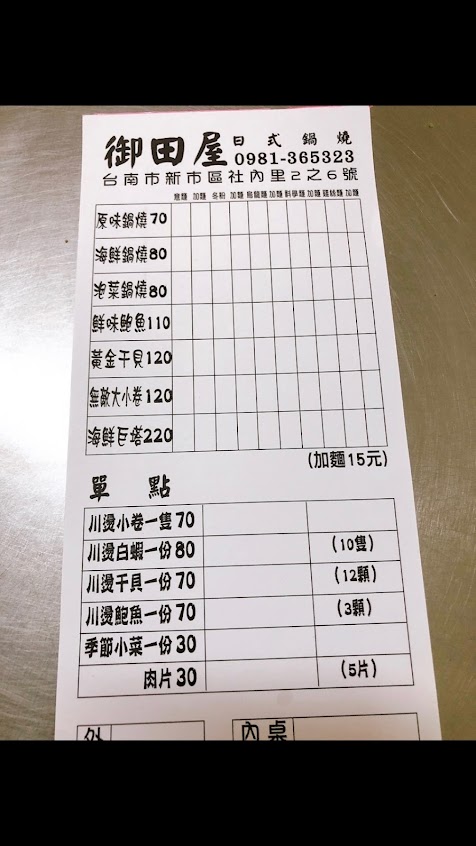 御田屋 日式鍋燒
0981-365323
台南市新市區社內里2之6號
意麵 加麵 冬粉 加麵 烏龍麵 加麵 科學麵 加麵 雞絲麵 加麵
原味鍋燒70
海鮮鍋燒80
泡菜鍋燒80
鮮味鮑魚110
黃金干貝120
無敵大小卷120
海鮮巨無220
(加麵15元)
單點
川燙小卷一隻70
川燙白蝦一份80 (10隻)
川燙干貝一份70 (12顆)
川燙鮑魚一份70 (3顆)
季節小菜一份30
肉片30 (5片)
外 內桌